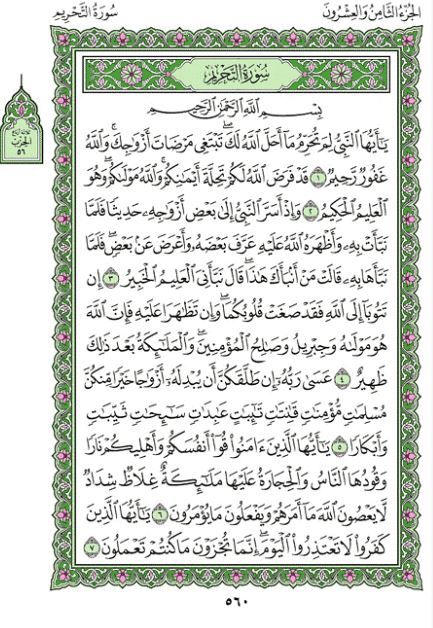 الجزء الثامن والعشرون
سورة التحريم
سورة التحريم
بسم الله الرحمن الرحيم
يَٰٓأَيُّهَا ٱلنَّبِيُّ لِمَ تُحَرِّمُ مَآ أَحَلَّ ٱللَّهُ لَكَۖ تَبۡتَغِي مَرۡضَاتَ أَزۡوَٰجِكَۚ وَٱللَّهُ
غَفُورٞ رَّحِيمٞ ١ قَدۡ فَرَضَ ٱللَّهُ لَكُمۡ تَحِلَّةَ أَيۡمَٰنِكُمۡۚ وَٱللَّهُ مَوۡلَىٰكُمۡۖ وَهُوَ
ٱلۡعَلِيمُ ٱلۡحَكِيمُ ٢ وَإِذۡ أَسَرَّ ٱلنَّبِيُّ إِلَىٰ بَعۡضِ أَزۡوَٰجِهِۦ حَدِيثٗا فَلَمَّا
نَبَّأَتۡ بِهِۦ وَأَظۡهَرَهُ ٱللَّهُ عَلَيۡهِ عَرَّفَ بَعۡضَهُۥ وَأَعۡرَضَ عَنۢ بَعۡضٖۖ فَلَمَّا
نَبَّأَهَا بِهِۦ قَالَتۡ مَنۡ أَنۢبَأَكَ هَٰذَاۖ قَالَ نَبَّأَنِيَ ٱلۡعَلِيمُ ٱلۡخَبِيرُ ٣ إِن
تَتُوبَآ إِلَى ٱللَّهِ فَقَدۡ صَغَتۡ قُلُوبُكُمَاۖ وَإِن تَظَٰهَرَا عَلَيۡهِ فَإِنَّ ٱللَّهَ
هُوَ مَوۡلَىٰهُ وَجِبۡرِيلُ وَصَٰلِحُ ٱلۡمُؤۡمِنِينَۖ وَٱلۡمَلَٰٓئِكَةُ بَعۡدَ ذَٰلِكَ
ظَهِيرٌ ٤ عَسَىٰ رَبُّهُۥٓ إِن طَلَّقَكُنَّ أَن يُبۡدِلَهُۥٓ أَزۡوَٰجًا خَيۡرٗا مِّنكُنَّ
مُسۡلِمَٰتٖ مُّؤۡمِنَٰتٖ قَٰنِتَٰتٖ تَٰٓئِبَٰتٍ عَٰبِدَٰتٖ سَٰٓئِحَٰتٖ ثَيِّبَٰتٖ
وَأَبۡكَارٗا ٥ يَٰٓأَيُّهَا ٱلَّذِينَ ءَامَنُواْ قُوٓاْ أَنفُسَكُمۡ وَأَهۡلِيكُمۡ نَارٗا
وَقُودُهَا ٱلنَّاسُ وَٱلۡحِجَارَةُ عَلَيۡهَا مَلَٰٓئِكَةٌ غِلَاظٞ شِدَادٞ
لَّا يَعۡصُونَ ٱللَّهَ مَآ أَمَرَهُمۡ وَيَفۡعَلُونَ مَا يُؤۡمَرُونَ ٦ يَٰٓأَيُّهَا ٱلَّذِينَ
كَفَرُواْ لَا تَعۡتَذِرُواْ ٱلۡيَوۡمَۖ إِنَّمَا تُجۡزَوۡنَ مَا كُنتُمۡ تَعۡمَلُونَ ٧
الحزب
٥٦
٥٦٠